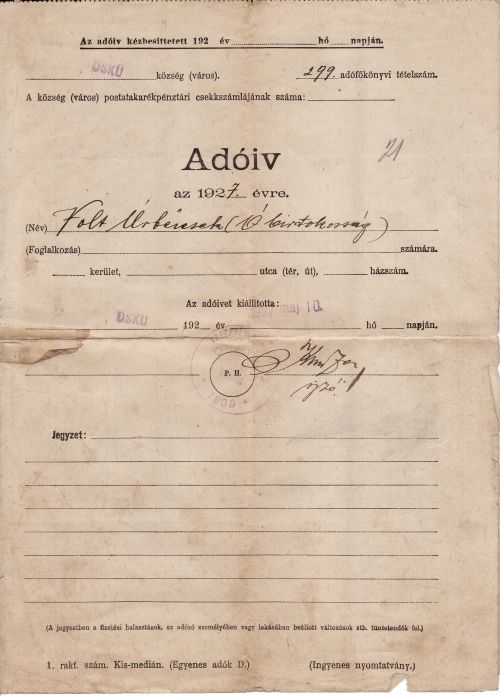 Az adóiv kézbesittetett 192 év hó napján.
ŐSKÜ község (város). 299. adófőkönyvi tételszám.
A község (város) postatakarékpénztári csekkszámlájának száma:
21
Adóiv
az 1927. évre.
(Név) Volt Úrbéresek (Ó birtokosság)
(Foglalkozás) számára.
kerület, utca (tér, út), házszám.
Az adóivet kiállitotta:
ŐSKÜ 192 év máj 10. hó napján.
P. H.
Jegyzet:
(A jegyzetben a fizetési halasztások, az adózó személyében vagy lakásában beállott változások stb. tüntetendők fel.)
1. rakt. szám. Kis-medián. (Egyenes adók D.) (Ingyenes nyomtatvány.)